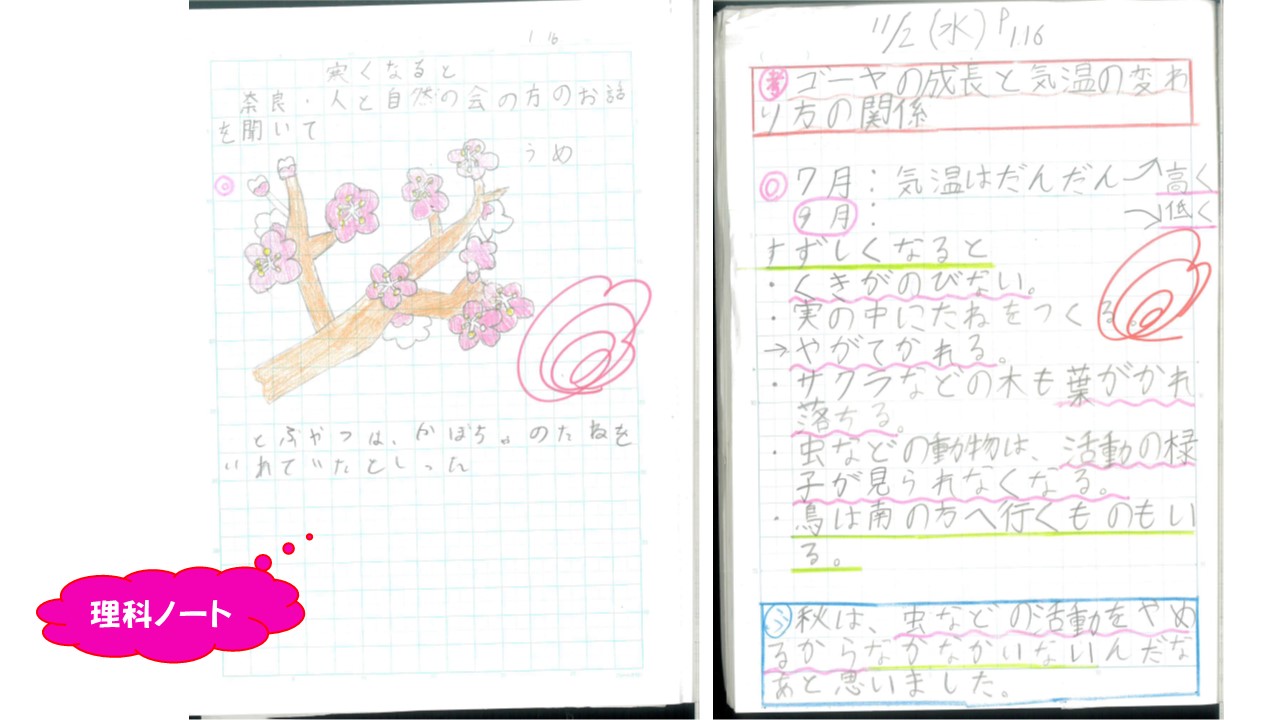 1 16
寒くなると
奈良・人と自然の会の方のお話
を聞いて
うめ
とふやつは、かぼちゃのたねを
いれていたとしった
理科ノート
11/2(水)P116
考 ゴーヤの成長と気温の変わ
り方の関係
7月:気温はだんだん 高く
9月: 低く
すずしくなると
・くきがのびない。
・実の中にたねをつくる。
→やがてかれる。
・サクラなどの木も葉がかれ
落ちる。
・虫などの動物は、活動の様
子が見られなくなる。
・鳥は南の方へ行くものもい
る。
秋は、虫などの活動をやめ
るからなかなかいないんだな
あと思いました。